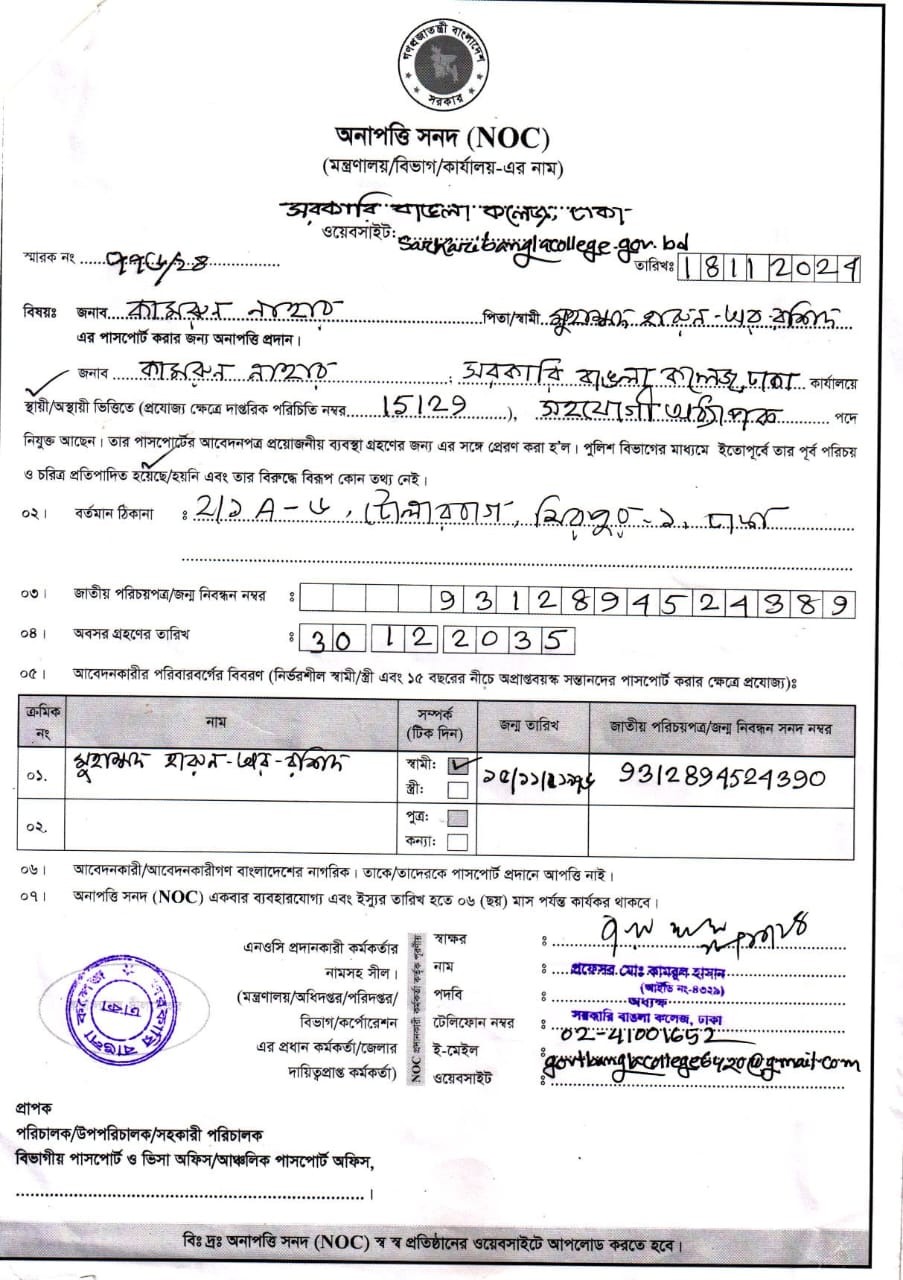 গণপ্রজাতন্ত্রী বাংলাদেশ
সরকার
অনাপত্তি সনদ (NOC)
(মন্ত্রণালয়/বিভাগ/কার্যালয়-এর নাম)
সরকারি বাঙলা কলেজ, ঢাকা
ওয়েবসাইট: sarkaribanglacollege.gov.bd
স্মারক নং ..... ৭৭৬/২৪
তারিখঃ 18 11 2024
বিষয়ঃ জনাব কামরুন নাহার পিতা/স্বামী মুহাম্মদ হারুন-অর-রশিদ
এর পাসপোর্ট করার জন্য অনাপত্তি প্রদান।
জনাব কামরুন নাহার, সরকারি বাঙলা কলেজ, ঢাকা কার্যালয়ে
স্থায়ী/অস্থায়ী ভিত্তিতে (প্রযোজ্য ক্ষেত্রে দাপ্তরিক পরিচিতি নম্বর 15129), সহযোগী অধ্যাপক পদে
নিযুক্ত আছেন। তার পাসপোর্টের আবেদনপত্র প্রয়োজনীয় ব্যবস্থা গ্রহণের জন্য এর সঙ্গে প্রেরণ করা হ'ল। পুলিশ বিভাগের মাধ্যমে ইতোপূর্বে তার পূর্ব পরিচয়
ও চরিত্র প্রতিপাদিত হয়েছে/হয়নি এবং তার বিরুদ্ধে বিরূপ কোন তথ্য নেই।
০২। বর্তমান ঠিকানা : 2/১ A-৬, টোলারবাগ, মিরপুর-১, ঢাকা
০৩। জাতীয় পরিচয়পত্র/জন্ম নিবন্ধন নম্বর : 9312894524389
০৪। অবসর গ্রহণের তারিখ : 30 12 2035
০৫। আবেদনকারীর পরিবারবর্গের বিবরণ (নির্ভরশীল স্বামী/স্ত্রী এবং ১৫ বছরের নীচে অপ্রাপ্তবয়স্ক সন্তানদের পাসপোর্ট করার ক্ষেত্রে প্রযোজ্য)ঃ
ক্রমিক নং নাম সম্পর্ক (টিক দিন) জন্ম তারিখ জাতীয় পরিচয়পত্র/জন্ম নিবন্ধন সনদ নম্বর
০১. মুহাম্মদ হারুন-অর-রশিদ স্বামী: 9312894524390
স্ত্রী:
০২. পুত্র:
কন্যা:
০৬। আবেদনকারী/আবেদনকারীগণ বাংলাদেশের নাগরিক। তাকে/তাদেরকে পাসপোর্ট প্রদানে আপত্তি নাই।
০৭। অনাপত্তি সনদ (NOC) একবার ব্যবহারযোগ্য এবং ইস্যুর তারিখ হতে ০৬ (ছয়) মাস পর্যন্ত কার্যকর থাকবে।
এনওসি প্রদানকারী কর্মকর্তার
নামসহ সীল।
(মন্ত্রণালয়/অধিদপ্তর/পরিদপ্তর/
বিভাগ/কর্পোরেশন
এর প্রধান কর্মকর্তা/জেলার
দায়িত্বপ্রাপ্ত কর্মকর্তা)
সরকারি বাঙলা কলেজ
ঢাকা
NOC প্রদানকারী কর্মকর্তা কর্তৃক পূরণীয়
স্বাক্ষর :
নাম : প্রফেসর মোঃ কামরুল হাসান
(আইডি নং-৪৩২৯)
পদবি : অধ্যক্ষ
সরকারি বাঙলা কলেজ, ঢাকা
টেলিফোন নম্বর : 02-41001652
ই-মেইল : govtbanglacollege6420@gmail.com
ওয়েবসাইট :
প্রাপক
পরিচালক/উপপরিচালক/সহকারী পরিচালক
বিভাগীয় পাসপোর্ট ও ভিসা অফিস/আঞ্চলিক পাসপোর্ট অফিস,
..........................................।
বিঃ দ্রঃ অনাপত্তি সনদ (NOC) স্ব স্ব প্রতিষ্ঠানের ওয়েবসাইটে আপলোড করতে হবে।